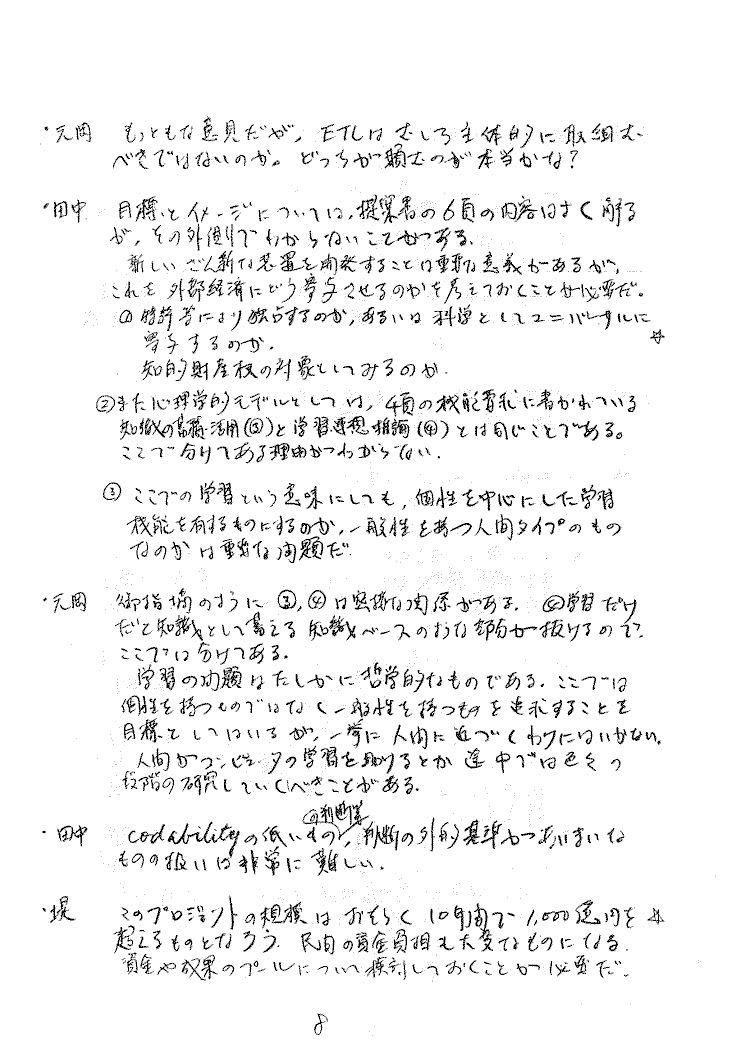 ・元岡 もっともな意見だが,ETLはむしろ主体的に取組む
べきではないのか。どっちが頼むのが本当かな?
・田中 目標とイメージについては,提案書の6頁の内容はよく解る
が,その外側でわからないことがある.
新しいざん新な装置を開発することは重要な意義があるが,
これを外部経済にどう寄与させるのかを考えておくことが必要だ。
① 特許等により独占するのか,あるいは科学としてユニバーサルに ☆
寄与するのか.
知的財産権の対象としてみるのか.
②また心理学的モデルとしては,4頁の機能要求に書かれている
知識の蓄積・活用(③)と学習連想推論(④)とは同じことである。
ここで分けてある理由がわからない.
③ ここでの学習という意味にしても,個性を中心にした学習
機能を有するものにするのか,一般性を持つ人間タイプのもの
なのかは重要な問題だ.
・元岡 御指摘のように③,④は密接な関係がある. ④学習だけ
だと知識として蓄える知識ベースのような部分が抜けるので,
ここでは分けてある.
学習の問題はたしかに哲学的なものである.ここでは
個性を持つものではなく一般性を持つものを追求することを
目標としてはいるが,一挙に人間に近づくわけにはいかない.
人間がコンピュータの学習を助けるとか途中では色々の
段階の研究していくべきことがある.
⑤判断等
・田中 codabilityの低いもの,判断の外的基準があいまいな
ものの扱いは非常に難しい.
・堤 このプロジェクトの規模はおそらく10年間で1,000億円を ☆
超えるものとなろう. 民間の資金負担も大変なものになる.
資金や成果のプールについて検討しておくことが必要だ.
8